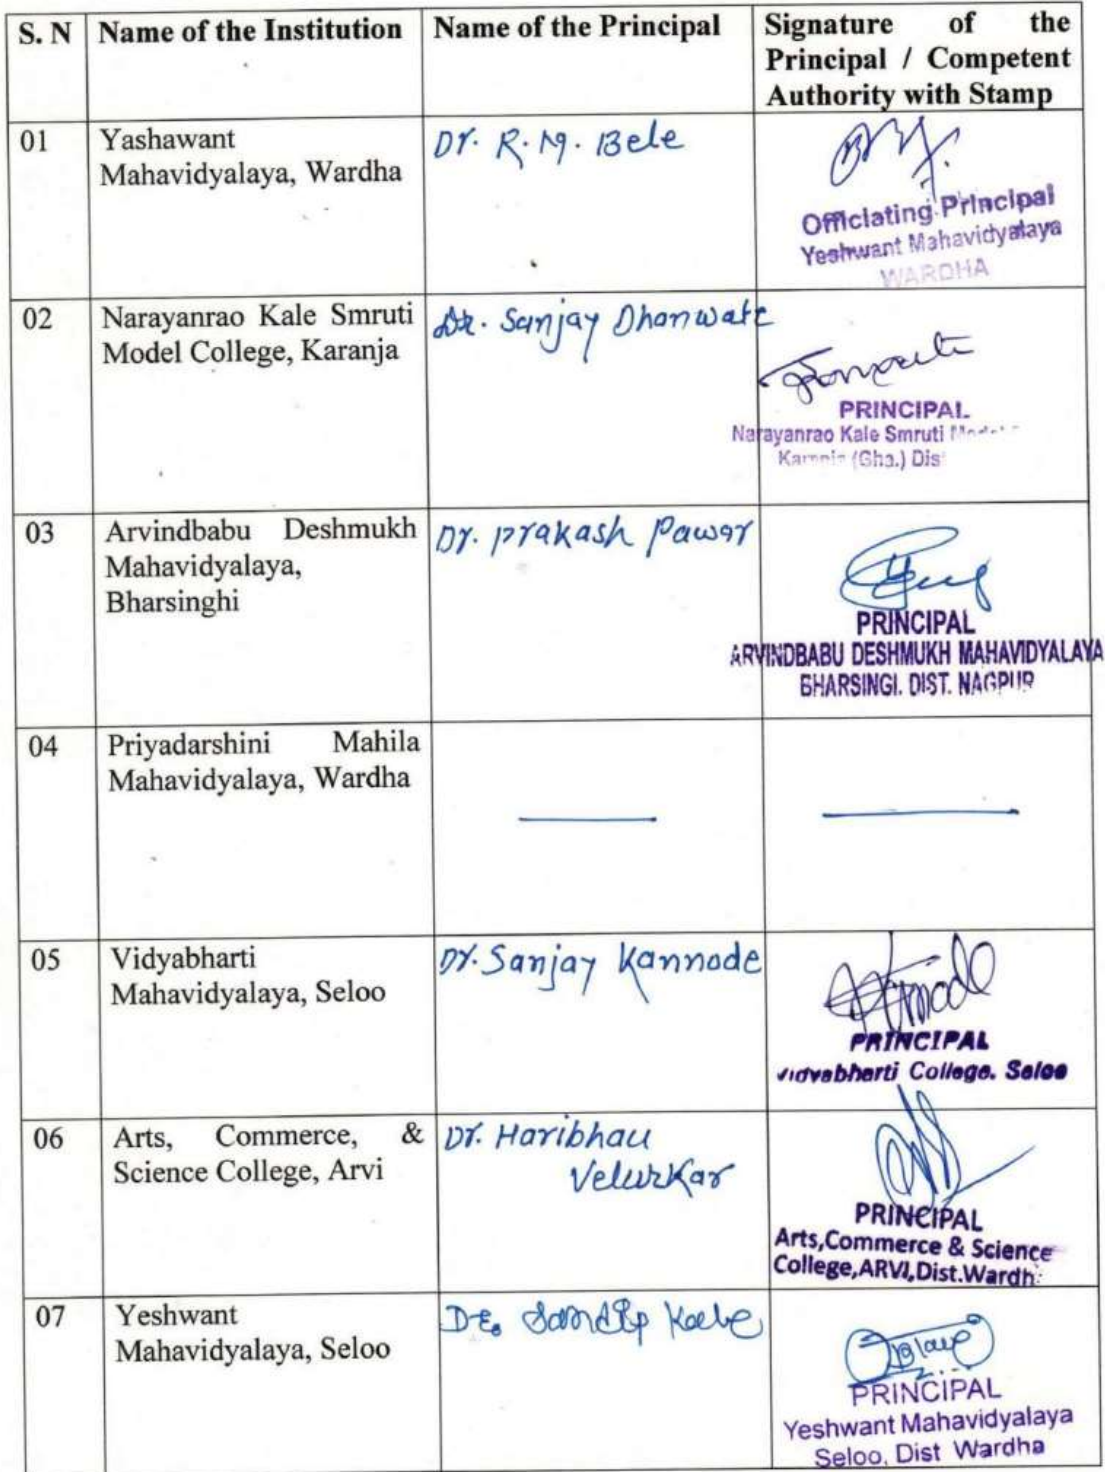 S. N
Name of the Institution
Name of the Principal
Signature of the
Principal / Competent
Authority with Stamp
01
Yashawant
Mahavidyalaya, Wardha
Dr. R. M. Bele
Officiating Principal
Yeshwant Mahavidyalaya
WARDHA
02
Narayanrao Kale Smruti
Model College, Karanja
Dr. Sanjay Dhanwate
PRINCIPAL
Narayanrao Kale Smruti Model
Karanja (Gha.) Dist
03
Arvindbabu Deshmukh
Mahavidyalaya,
Bharsinghi
Dr. Prakash Pawar
PRINCIPAL
ARVINDBABU DESHMUKH MAHAVIDYALAYA
BHARSINGI. DIST. NAGPUR
04
Priyadarshini Mahila
Mahavidyalaya, Wardha
05
Vidyabharti
Mahavidyalaya, Seloo
Dr. Sanjay Kannode
PRINCIPAL
Vidyabharti College. Seloo
06
Arts, Commerce, &
Science College, Arvi
Dr. Haribhau
Velurkar
PRINCIPAL
Arts,Commerce & Science
College,ARVI,Dist.Wardh
07
Yeshwant
Mahavidyalaya, Seloo
Dr. Sandip
PRINCIPAL
Yeshwant Mahavidyalaya
Seloo, Dist Wardha